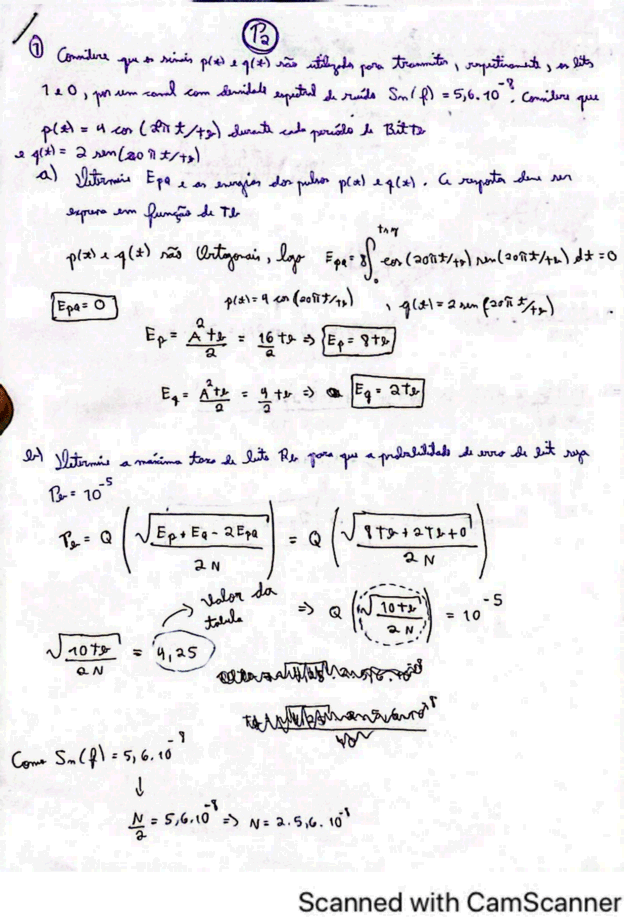 P2
① Considere que os sinais p(t) e q(t) são utilizados para transmitir, respectivamente, os bits
1 e 0, por um canal com densidade espectral de ruído Sn(f) = 5,6.10^-8. Considere que
p(t) = 4 cos(20π t/tb) durante cada período de Bit Tb
e q(t) = 2 sen(20π t/tb)
a) Determine Epq e as energias dos pulsos p(t) e q(t). A resposta deve ser
expressa em função de Tb
p(t) e q(t) são Ortogonais, logo Epq = 8∫ cos(20πt/tb) sen(20πt/tb) dt = 0
Epq = 0 p(t) = 4 cos(20πt/tb), q(t) = 2 sen(20πt/tb)
Ep = A²tb/2 = 16/2 tb => Ep = 8tb
Eq = A²tb/2 = 4/2 tb => Eq = 2tb
b) Determine a máxima taxa de bits Rb para que a probabilidade de erro de bit seja
Pe = 10^-5
Pe = Q(√(Ep + Eq - 2Epq / 2N)) = Q(√(8tb + 2tb + 0 / 2N))
valor da
tabela
=> Q(√(10tb / 2N)) = 10^-5
√(10tb / 2N) = 4,25
Como Sn(f) = 5,6.10^-8
↓
N/2 = 5,6.10^-8 => N = 2.5,6.10^-8
Scanned with CamScanner